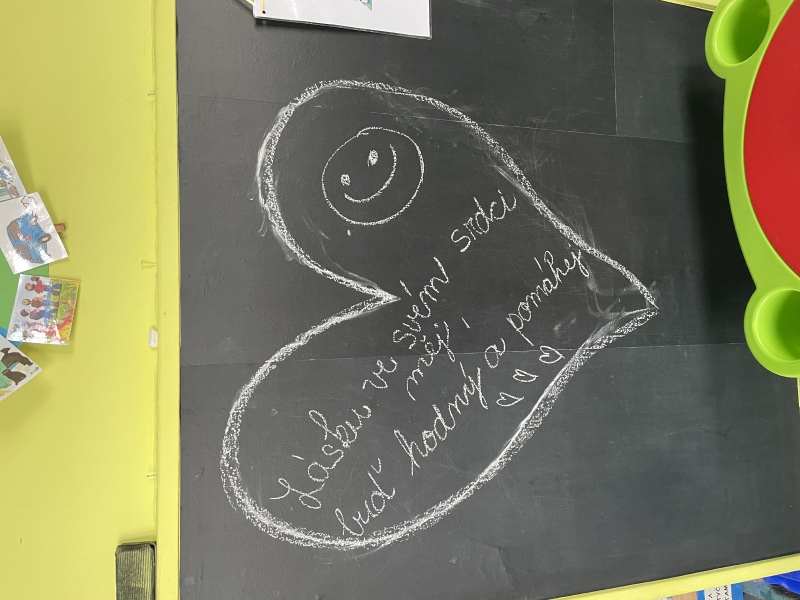 Lásku ve svém srdci
měj,
buď hodný a pomáhej